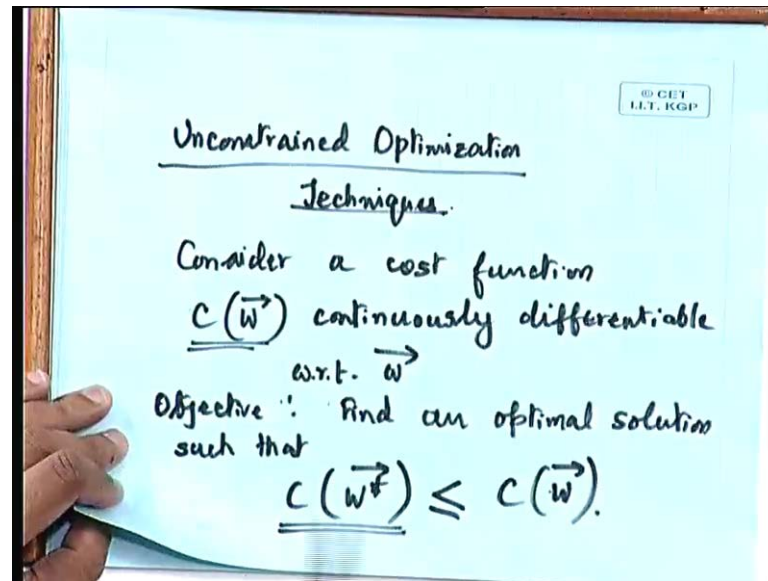 © CET
I.I.T. KGP
Unconstrained Optimization
Techniques.
Consider a cost function
C(w⃗) continuously differentiable
w.r.t. w⃗
Objective : Find an optimal solution
such that
C(w⃗*) ≤ C(w⃗).